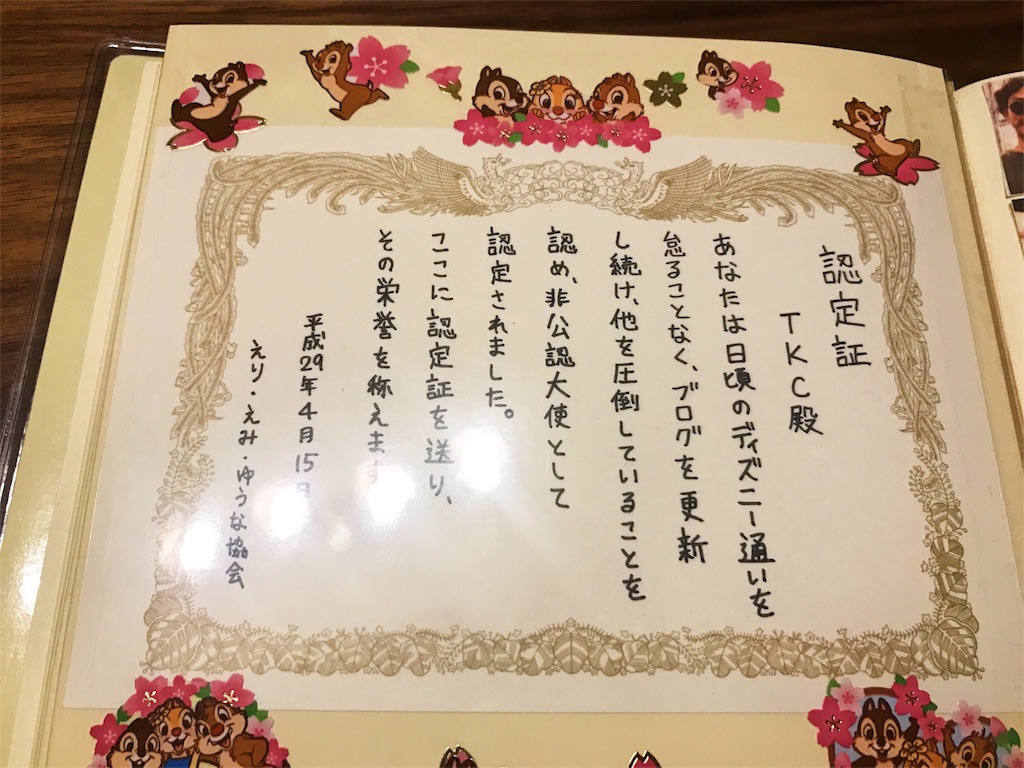 認定証
TKC殿
あなたは日頃のディズニー通いを
怠ることなく、ブログを更新
し続け、他を圧倒していることを
認め、非公認大使として
認定されました。
ここに認定証を送り、
その栄誉を称えます
平成29年4月15日
えり・えみ・ゆうな協会